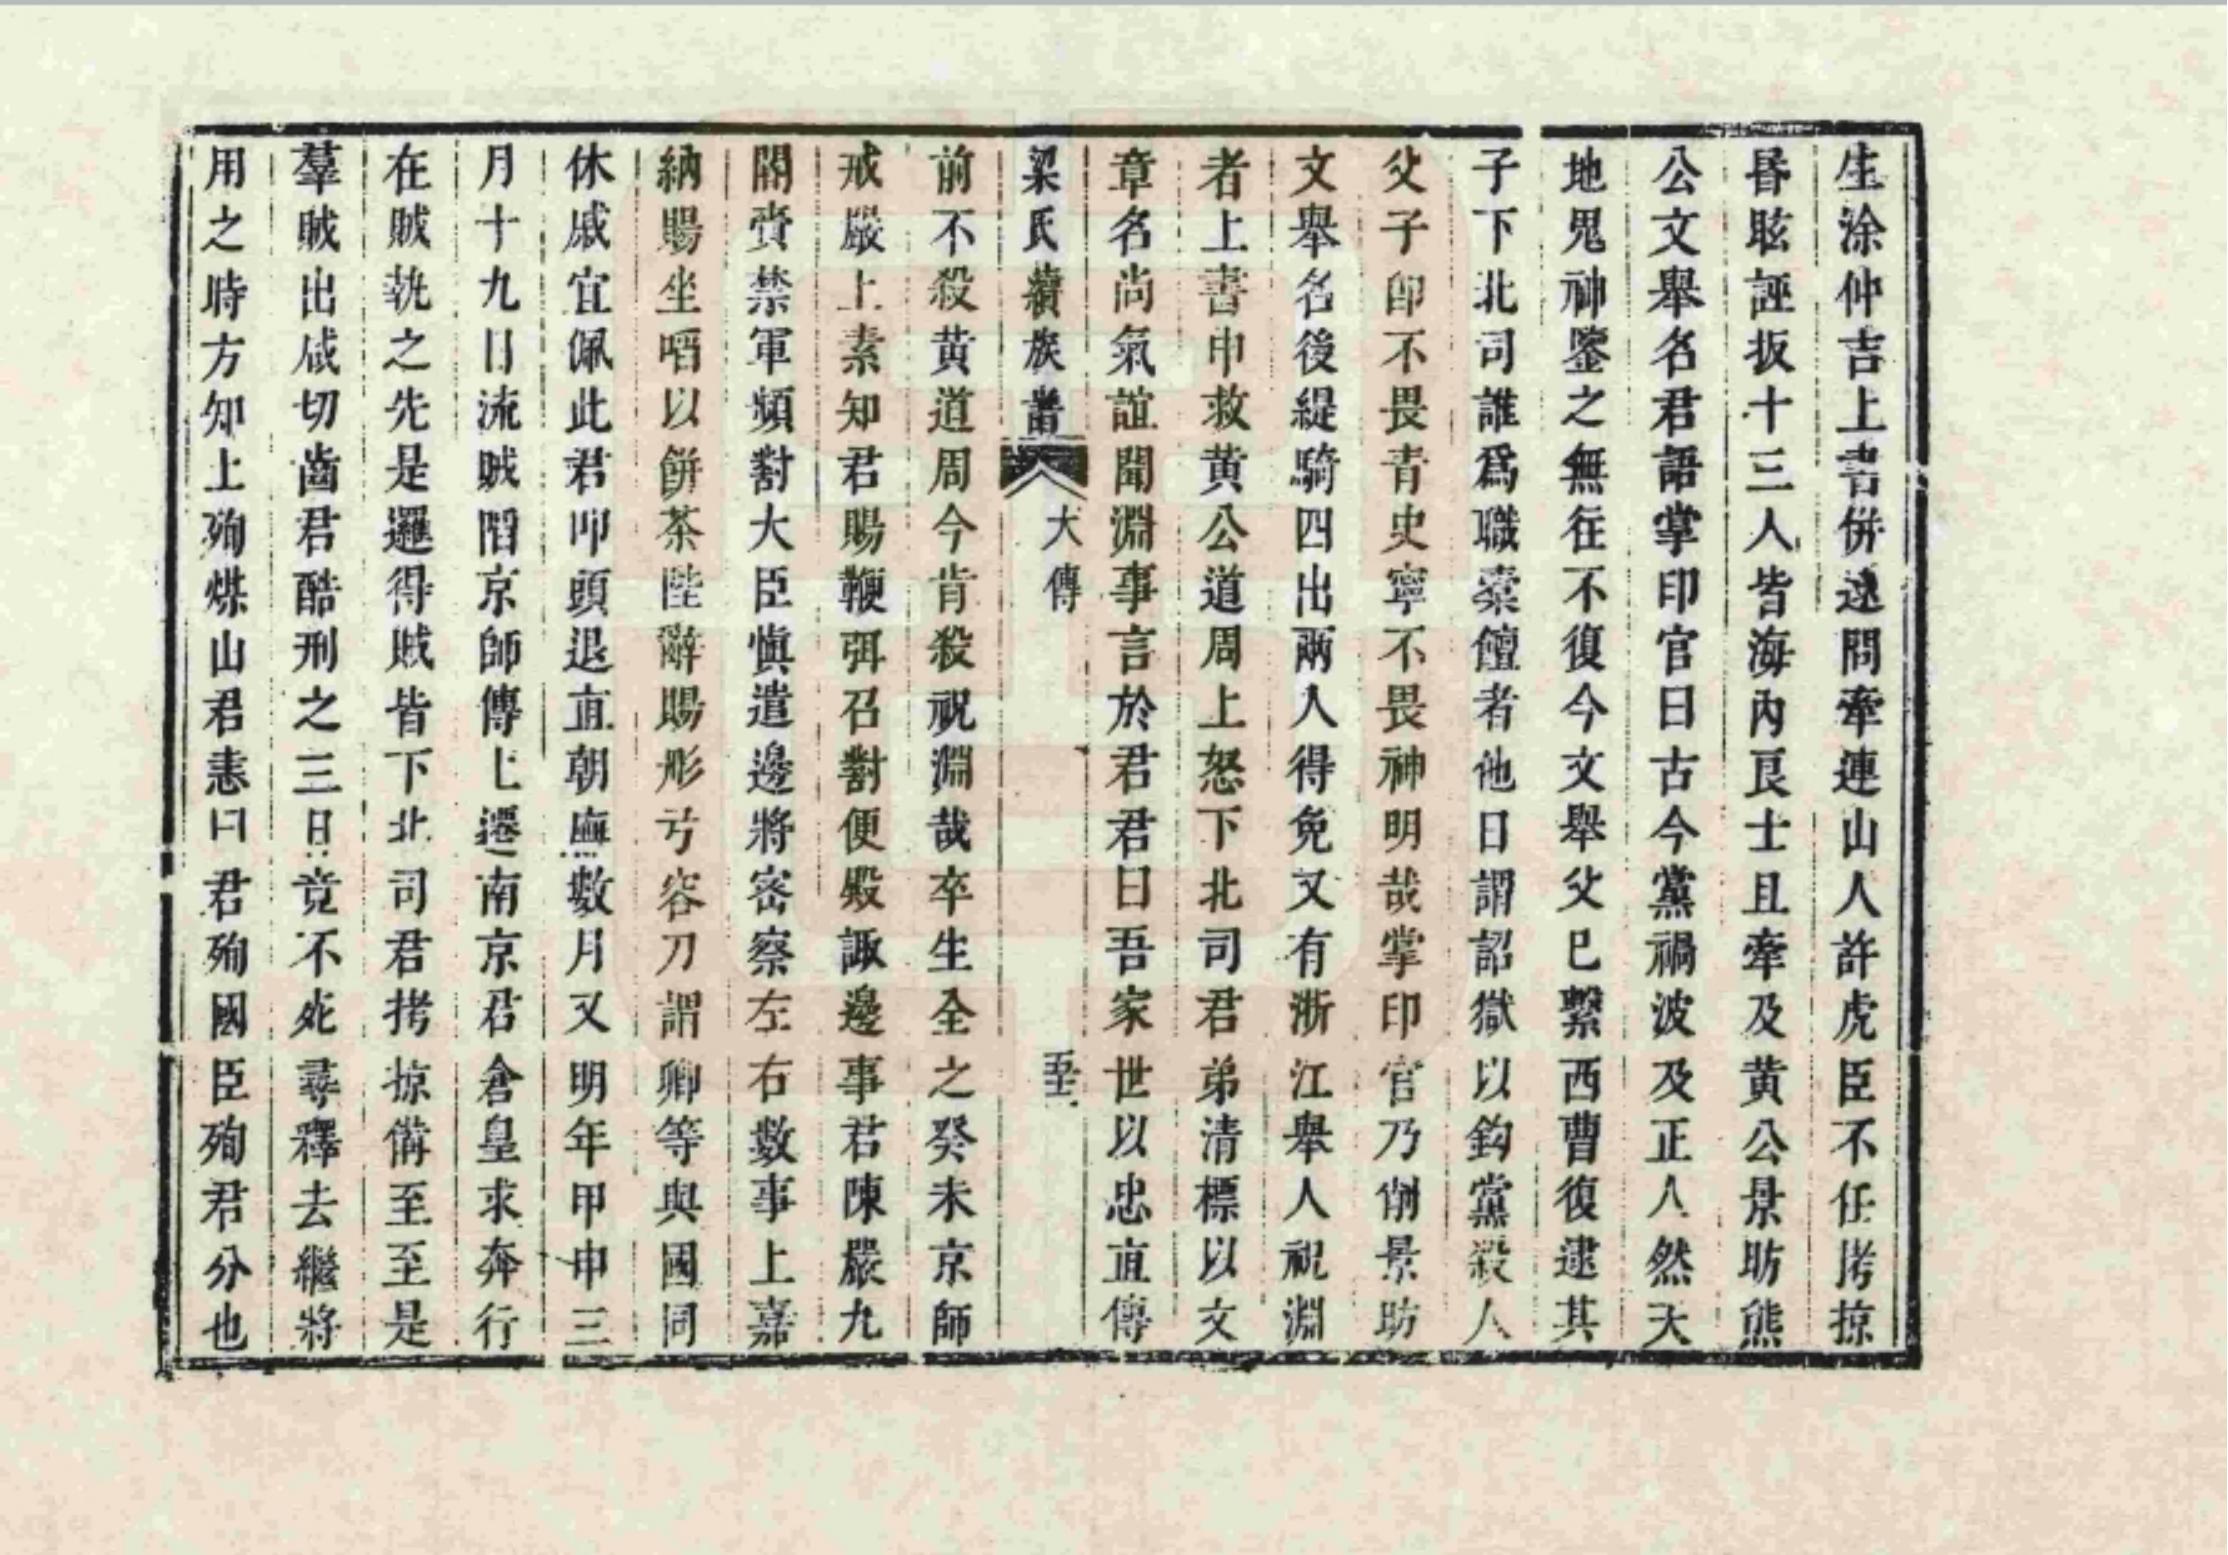 生涂仲吉上書併逮問牽連山人許虎臣不任拷掠
昬眩誣扳十三人皆海內良士且牽及黃公景昉熊
公文舉名君語掌印官曰古今黨禍波及正人然天
地鬼神鑒之無往不復今文舉父已繫西曹復逮其
子下北司誰爲職槖饘者他日謂詔獄以鈎黨殺人
父子卽不畏青史寧不畏神明哉掌印官乃削景昉
文舉名後緹騎四出兩人得免又有浙江舉人祝淵
者上書申救黃公道周上怒下北司君弟清標以文
章名尚氣誼聞淵事言於君君曰吾家世以忠直傳
梁氏續族譜
大傳
前不殺黃道周今肯殺祝淵哉卒生全之癸未京師
戒嚴上素知君賜鞭弭召對便殿諏邊事君陳嚴九
關賚禁軍頻對大臣愼遣邊將密察左右數事上嘉
納賜坐啗以餅茶陛辭賜彤弓容刀謂卿等與國同
休戚宜佩此君叩頭退直朝廡數月又明年甲申三
月十九日流賊陷京師傳上遷南京君倉皇求奔行
在賊執之先是邏得賊皆下北司君拷掠備至至是
羣賊出咸切齒君酷刑之三日竟不死尋釋去繼將
用之時方知上殉煤山君恚曰君殉國臣殉君分也